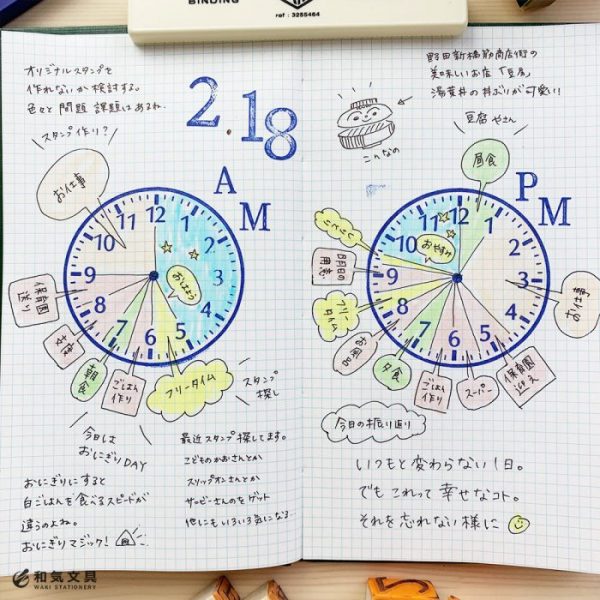 BINDING
ref : 3255464
オリジナルスタンプを
作れないか検討する。
色々と問題 課題はあるね.
スタンプ作り?
2.18
野田新橋筋商店街の
美味しいお店「豆庭」
湯葉丼の丼ぶりが可愛い
こんなの
豆腐やさん
AM
12
1
2
3
4
5
6
7
8
9
10
11
お仕事
おはよう
保育園
送り
支度
朝食
ごはん
作り
フリータイム
スタンプ
探し
PM
12
1
2
3
4
5
6
7
8
9
10
11
昼食
お仕事
保育園
迎え
スーパー
ごはん
作り
夕食
お風呂
フリー
タイム
明日の
用意
おやすみ
今日は
おにぎりDAY
おにぎりにすると
白ごはんを食べるスピードが
違うのよね。
おにぎりマジック!
最近スタンプ探してます。
こどものかおさんとか
スリップオンさんとか
サービーさんのをゲット
他にもいろいろ気になる
今日の振り返り
いつもと変わらない1日。
でもこれって幸せなコト。
それを忘れない様に
和気文具
WAKI STATIONERY